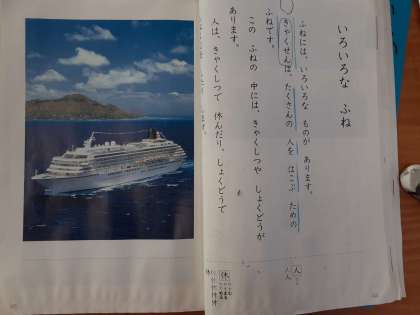 いろいろな ふね
ふねには、いろいろな ものが あります。
きゃくせんは、たくさんの 人を はこぶ ための
ふねです。
この ふねの 中には、きゃくしつや しょくどうが
あります。
人は、きゃくしつで 休んだり、しょくどうで
ます。
人
休